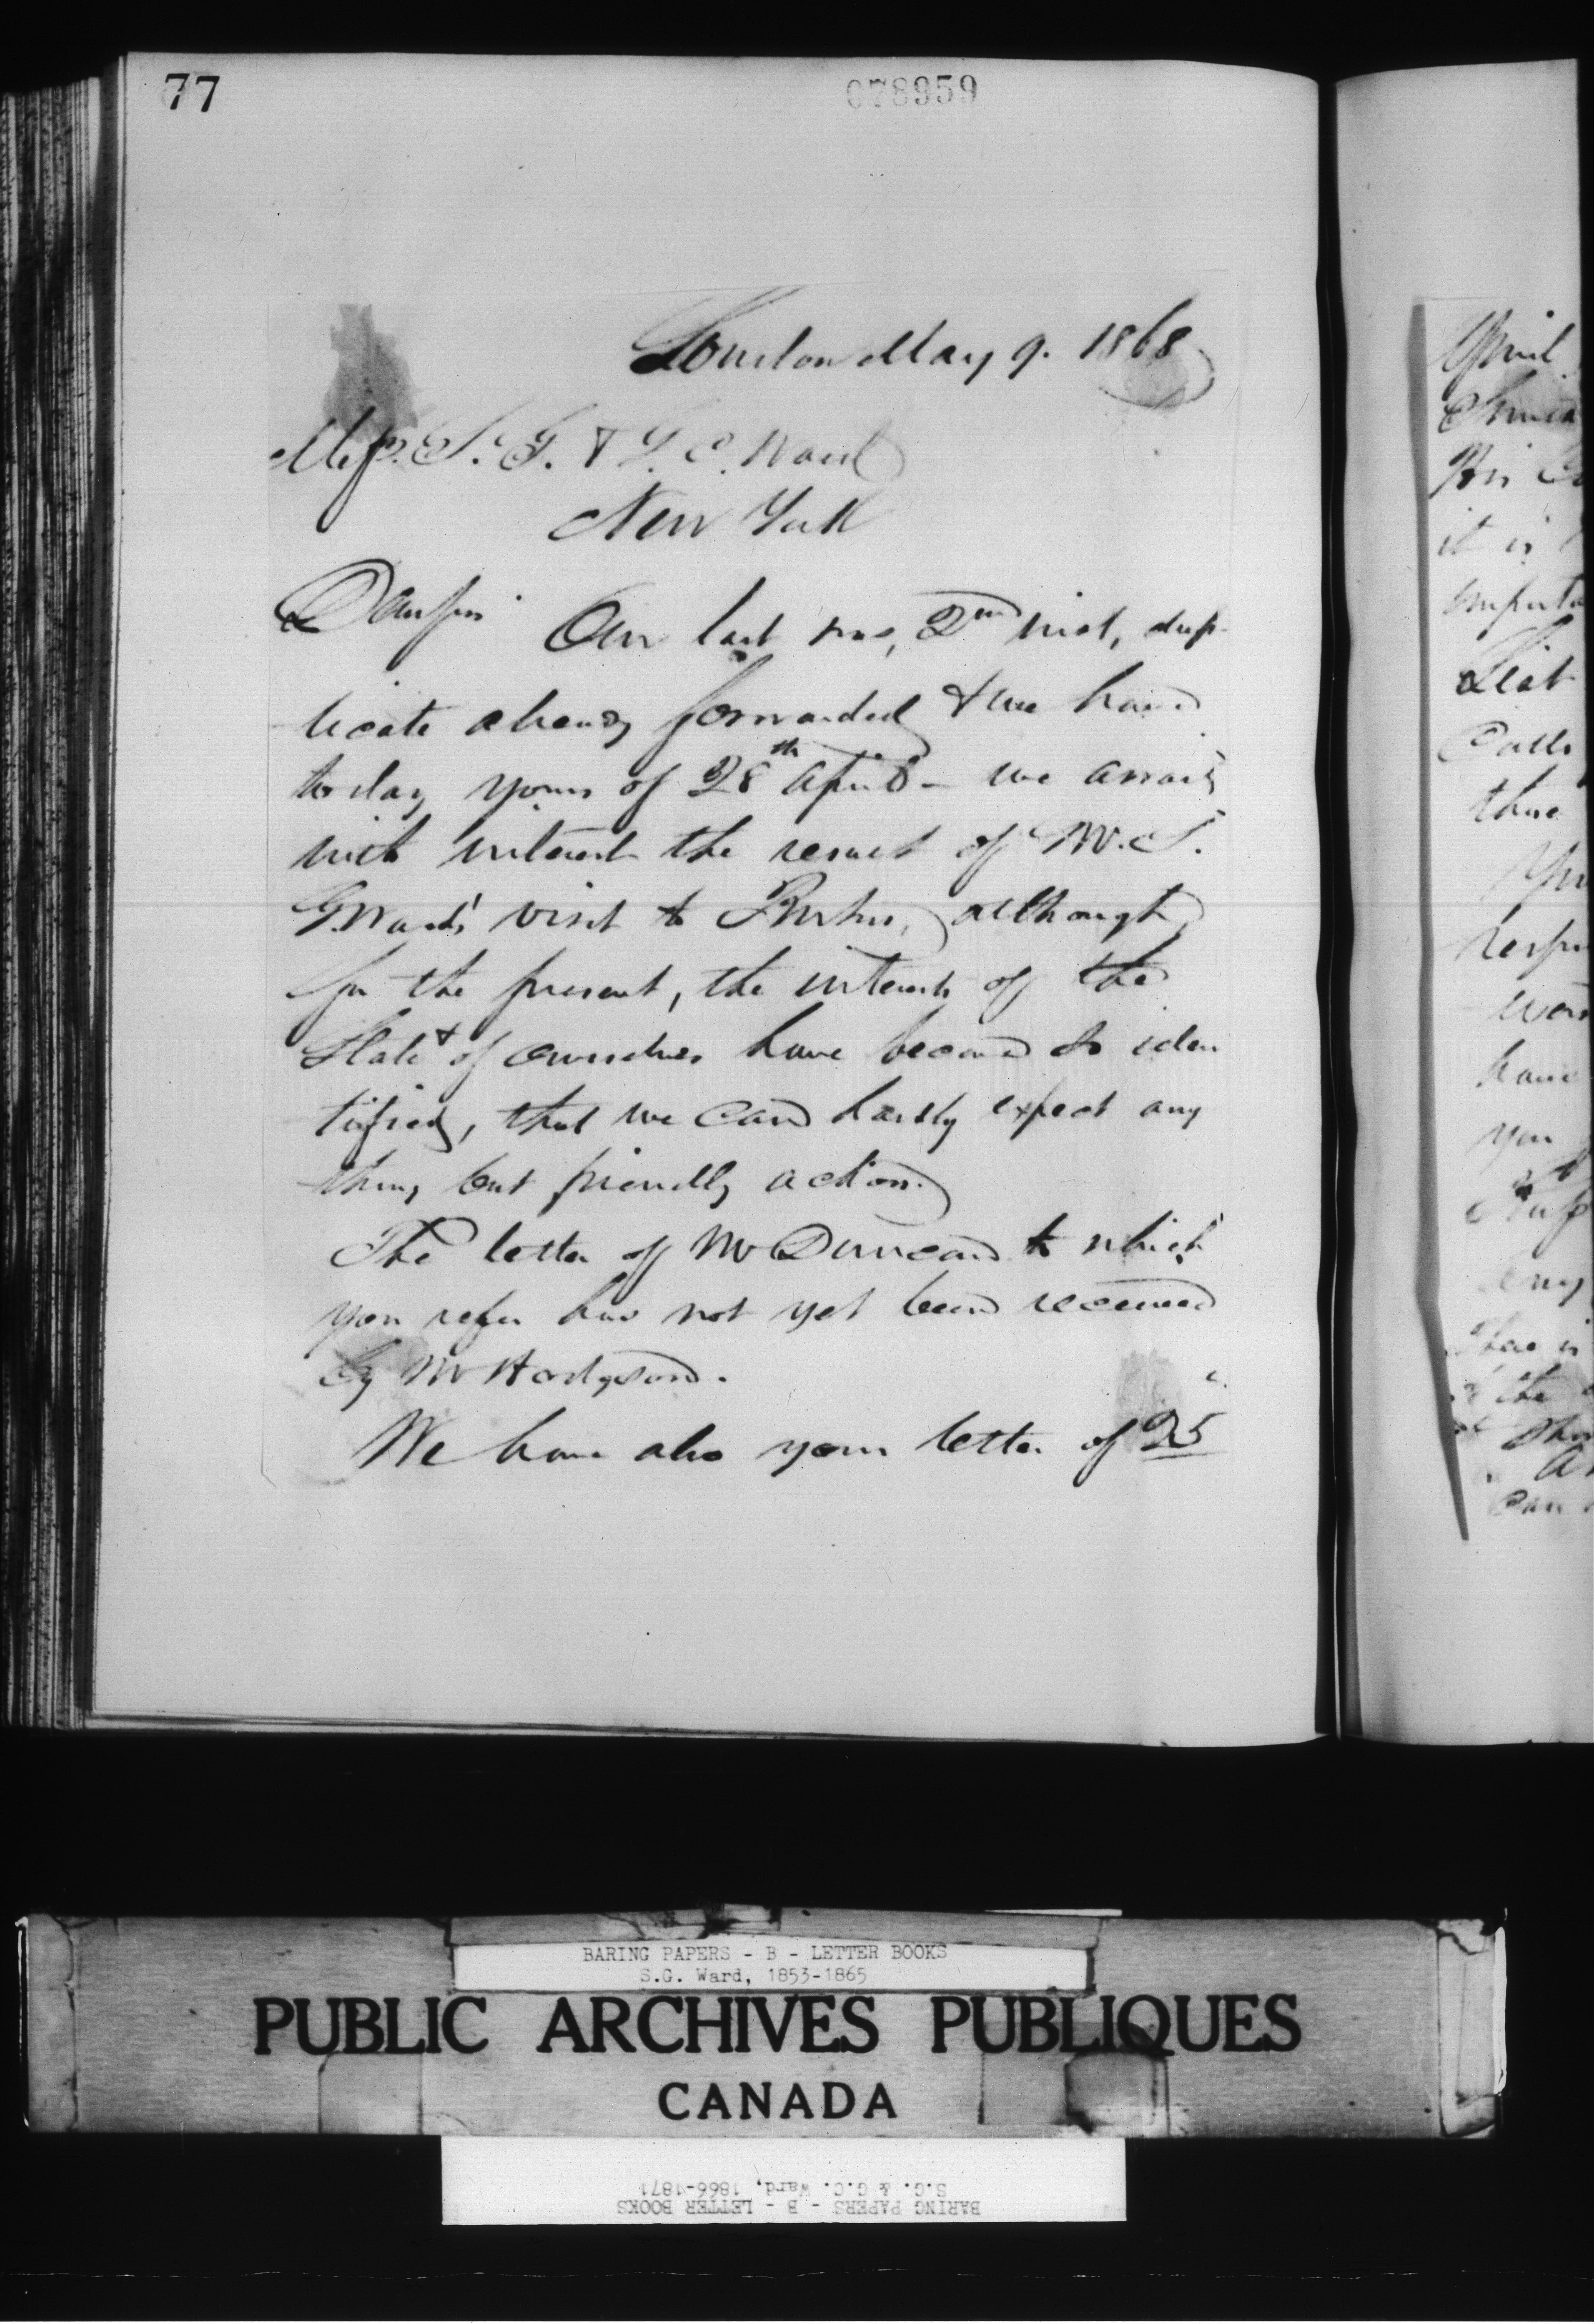 77
078959
London May 9. 1868
Mess. S. G. & G. C. Ward
New York
Dear Sirs Our last was, 2nd inst, dup-
licate already forwarded & we have
today yours of 28th April - we await
with interest the result of Mr. S.
G. Ward's visit to Boston, although
for the present, the interests of the
State & of ourselves have become so iden
tified, that we can hardly expect any
thing but friendly action.
The letter of Mr Duncan to which
you refer has not yet been received
by Mr Hodgson.
We have also your letter of 25
April
His
it is
importa
Seat
Calls
those
respe
have
you
any
There is
the
Can
BARING PAPERS - B - LETTER BOOKS
S.G. Ward, 1853-1865
PUBLIC ARCHIVES PUBLIQUES
CANADA
BARING PAPERS - B - LETTER BOOKS
S.G. & G.C. Ward, 1866-1871